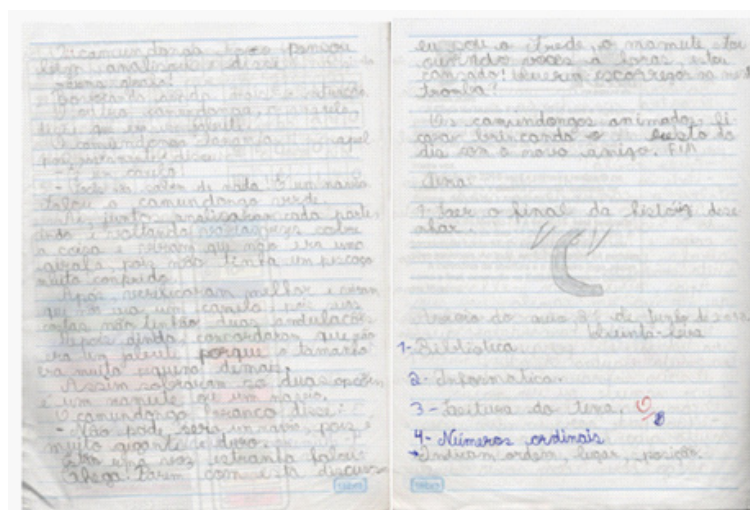 O camundongo roxo pensou
logo, analisou e disse:
O outro camundongo, o amarelo
disse que era um palente.
O camundongo laranja
disse:
- É um camelo!
- Vocês não sabem de nada! É um navio
falou o camundongo verde.
Aí juntos analisaram cada parte
a coisa e viram que não era uma
girafa, pois não tinha um pescoço
muito comprido.
Após verificaram melhor e viram
que não era um camelo pois suas
costas não tinhão duas andulações
Depois ainda concordaram que não
era um palente porque o tamanho
era muito equeno demais.
Assim sobraram só duas opções
é um mamute ou um navio.
O camundongo branco disse:
- Não pode ser um navio, pois é
muito gigante e duro.
uma voz estranha falou:
Chega! Parem com esta discussão
eu sou o Fredo, o mamute estou
ouvindo vocês a horas, estou
cansado! Querem escorregar na minha
tromba?
Os camundongos animados fi
caram brincando o resto do
dia com o novo amigo. FIM
Tema:
1- Fazer o final da história dese
nhar.
Arroio do meio 27 de junho de
1- Biblioteca
2- Informática.
3- Leitura do tema.
4- Números ordinais
→ Indicam ordem, lugar, posição.